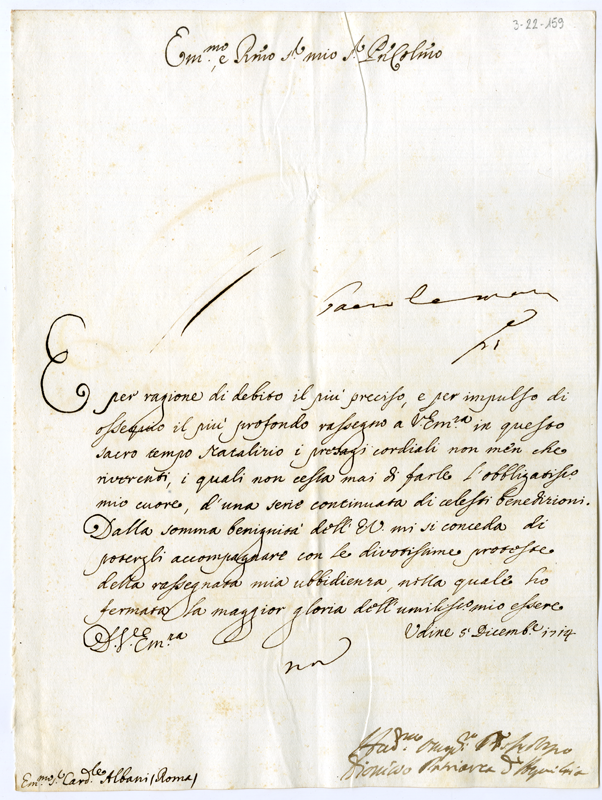 3-22-159
Em.mo, e Rmo Sr. mio Sr. Pne Colmo
E per ragione di debito il più preciso, e per impulso di
ossequio il più profondo rassegno a V. Em.ra in questo
sacro tempo Natalizio i presagi cordiali non men che
riverenti, i quali non cessa mai di farle l'obbligatiss.o
mio cuore, d'una serie continuata di celesti benedizioni.
Dalla somma benignità dell' EV. mi si conceda di
potergli accompagnare con le divotissime proteste
della rassegnata mia ubbidienza, nella quale ho
fermata la maggior gloria dell'umilissimo mio essere
D. V. Em.ra Udine 5 Dicemb.e 1714
Dionisio Patriarca d'Aquileia
Em.mo S.r Card.le Albani (Roma)